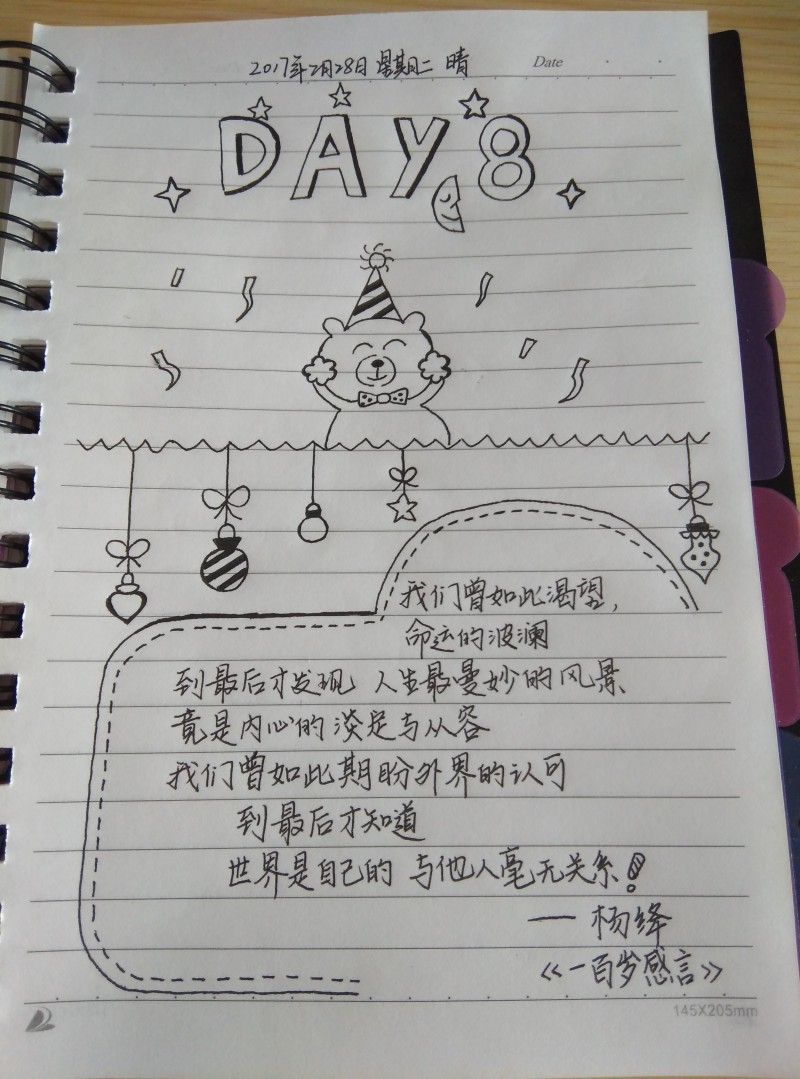 2017年2月28日 星期二 晴 Date
DAY 8
我们曾如此渴望,
命运的波澜
到最后才发现 人生最曼妙的风景
竟是内心的淡定与从容
我们曾如此期盼外界的认可
到最后才知道
世界是自己的 与他人毫无关系!
— 杨绛
《一百岁感言》
145X205mm